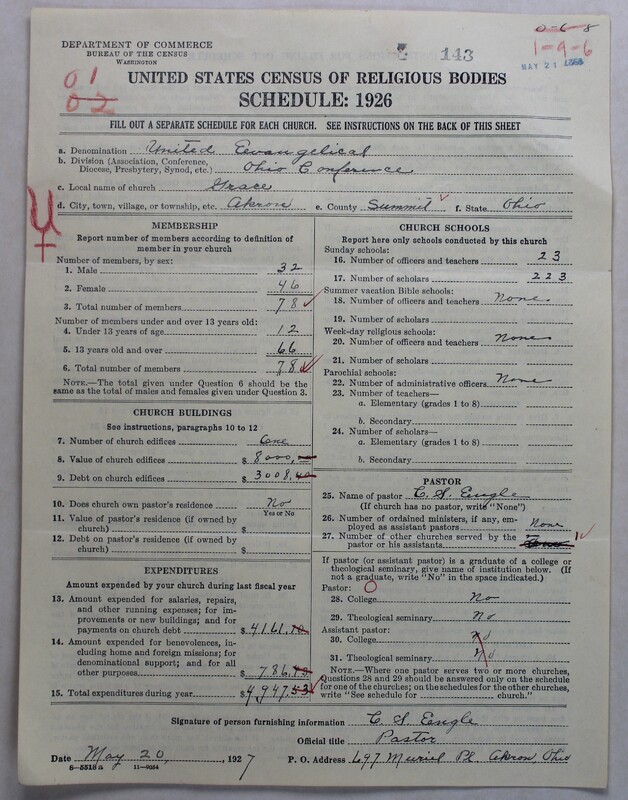 0-6-8
DEPARTMENT OF COMMERCE
BUREAU OF THE CENSUS
WASHINGTON
143
1-9-6
MAY 21
01
02
UNITED STATES CENSUS OF RELIGIOUS BODIES
SCHEDULE: 1926
FILL OUT A SEPARATE SCHEDULE FOR EACH CHURCH. SEE INSTRUCTIONS ON THE BACK OF THIS SHEET
a. Denomination United Evangelical
b. Division (Association, Conference, Diocese, Presbytery, Synod, etc.) Ohio Conference
c. Local name of church Grace
d. City, town, village, or township, etc. Akron e. County Summit f. State Ohio
MEMBERSHIP
Report number of members according to definition of
member in your church
Number of members, by sex:
1. Male 32
2. Female 46
3. Total number of members 78
Number of members under and over 13 years old:
4. Under 13 years of age 12
5. 13 years old and over 66
6. Total number of members 78
NOTE.—The total given under Question 6 should be the
same as the total of males and females given under Question 3.
CHURCH BUILDINGS
See instructions, paragraphs 10 to 12
7. Number of church edifices One
8. Value of church edifices $ 8000,
9. Debt on church edifices $ 3008.40
10. Does church own pastor's residence No
Yes or No
11. Value of pastor's residence (if owned by
church) $
12. Debt on pastor's residence (if owned by
church) $
EXPENDITURES
Amount expended by your church during last fiscal year
13. Amount expended for salaries, repairs,
and other running expenses; for im-
provements or new building; and for
payments on church debt $ 4161.
14. Amount expended for benevolences, in-
cluding home and foreign missions; for
denominational support; and for all
other purposes 786.
15. Total expenditures during year $ 4947.53
CHURCH SCHOOLS
Report here only schools conducted by this church
Sunday schools:
16. Number of officers and teachers 23
17. Number of scholars 223
Summer vacation Bible schools:
18. Number of officers and teachers None
19. Number of scholars
Week-day religious schools:
20. Number of officers and teachers None
21. Number of scholars
Parochial schools:
22. Number of administrative officers None
23. Number of teachers—
a. Elementary (grades 1 to 8)
b. Secondary
24. Number of scholars—
a. Elementary (grades 1 to 8)
b. Secondary
PASTOR
25. Name of pastor C. S. Engle
(If church has no pastor, write "None")
26. Number of ordained ministers, if any, em-
ployed as assistant pastors None
27. Number of other churches served by the
pastor or his assistants 1
If pastor (or assistant pastor) is a graduate of a college or
theological seminary, give name of institution below. (If
not a graduate, write "No" in the space indicated.)
Pastor: O
28. College No
29. Theological seminary No
Assistant pastor:
30. College No
31. Theological seminary No
NOTE.—Where one pastor serves two or more churches,
Questions 28 and 29 should be answered only on the schedule
for one of the churches; on the schedules for the other churches,
write "See schedule for church."
Signature of person furnishing information C. S. Engle
Official title Pastor
Date May 20, 1927 P. O. Address 697 Muriel Pl. Akron, Ohio
8-5518 a 11-9054